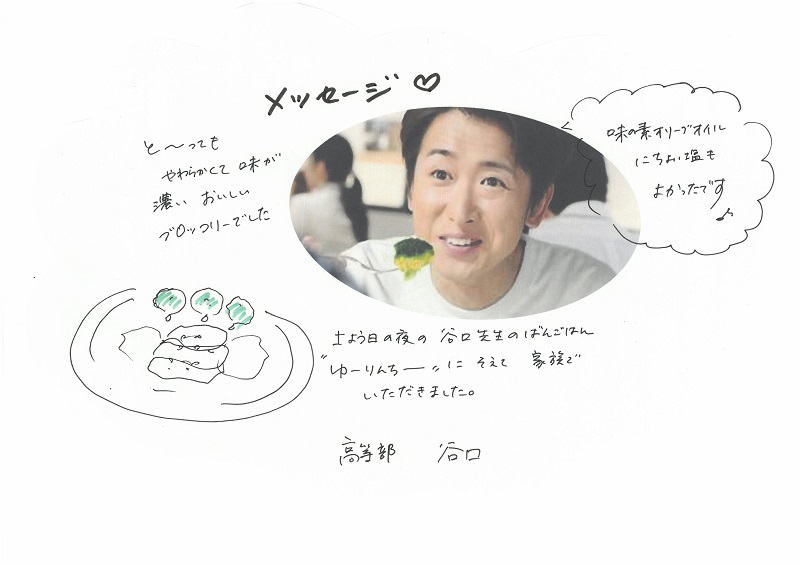 メッセージ♡
と〜っても
やわらかくて味が
濃い おいしい
ブロッコリーでした
味の素オリーブオイル
にちょい塩も
よかったです♪
土よう日の夜の 谷口先生のばんごはん
"ゆーりんちー"に そえて 家族で
いただきました。
高等部 谷口